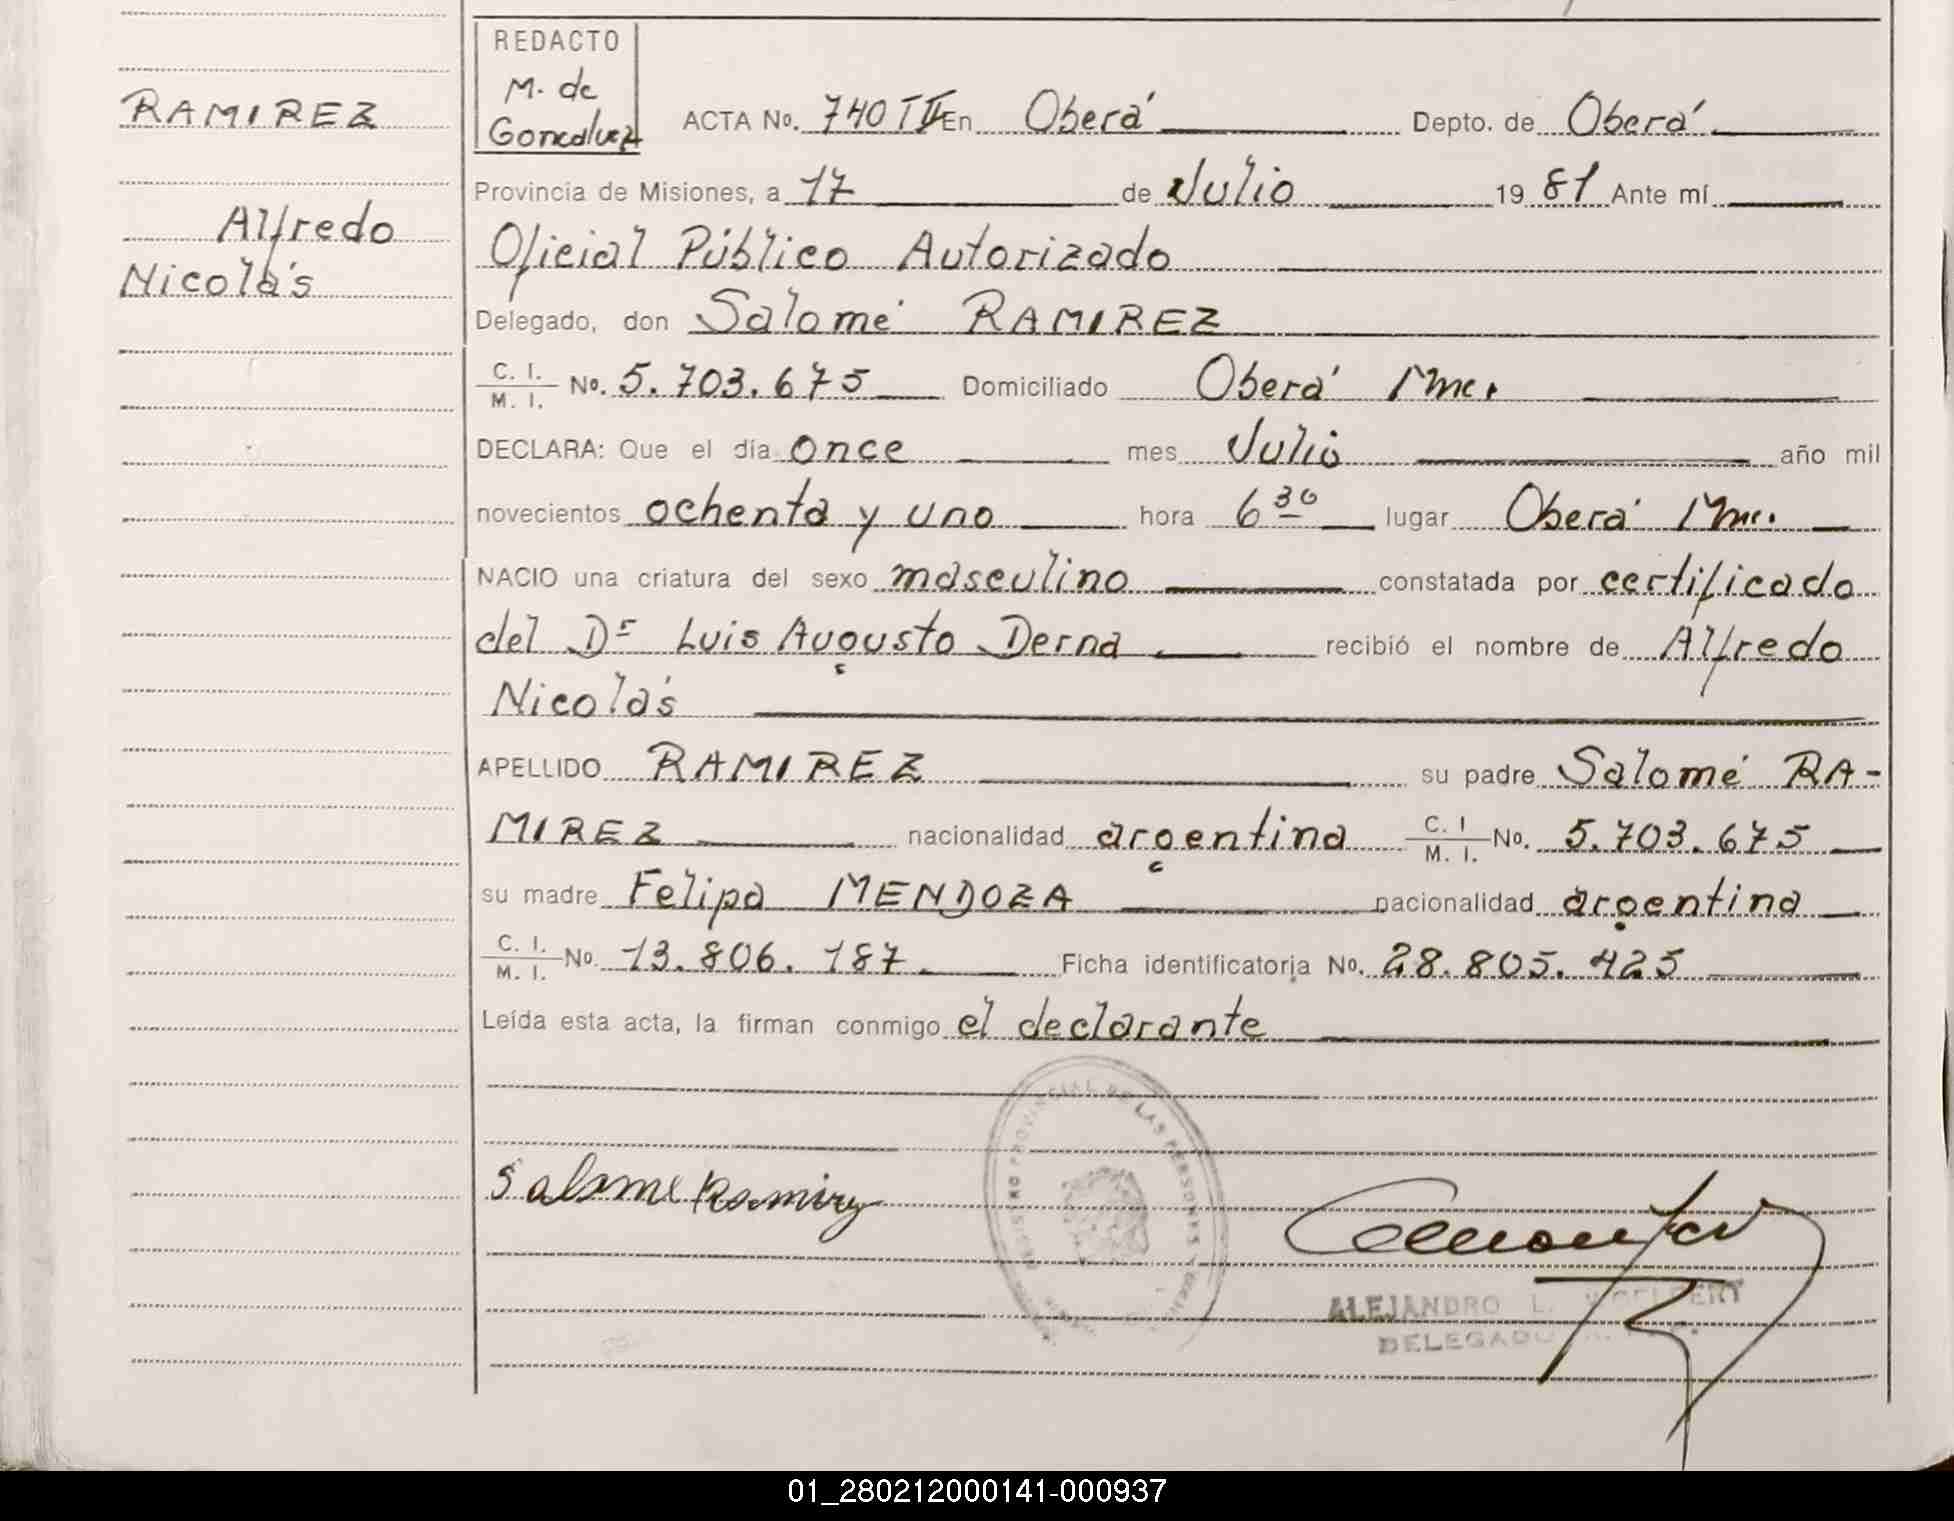 REDACTO
M. de
Goncalvez
RAMIREZ
Alfredo
Nicolás
ACTA No. 740 TII En Oberá Depto. de Oberá
Provincia de Misiones, a 17 de Julio 19 81 Ante mí
Oficial Público Autorizado
Delegado, don Salomé RAMIREZ
C. I. / M. I. No. 5.703.675 Domiciliado Oberá Mnes.
DECLARA: Que el día once mes Julio año mil
novecientos ochenta y uno hora 6 30 lugar Oberá Mnes.
NACIO una criatura del sexo masculino constatada por certificado
del Dr Luis Augusto Derna recibió el nombre de Alfredo
Nicolás
APELLIDO RAMIREZ su padre Salomé RA-
MIREZ nacionalidad argentina C. I / M. I. No. 5.703.675
su madre Felipa MENDOZA nacionalidad argentina
C. I. / M. I. No. 13.806.187 Ficha identificatoria No. 28.805.425
Leída esta acta, la firman conmigo el declarante
PROVINCIAL DE LAS PERSONAS
Salome Ramirez
ALEJANDRO L.
DELEGADO
01_280212000141-000937